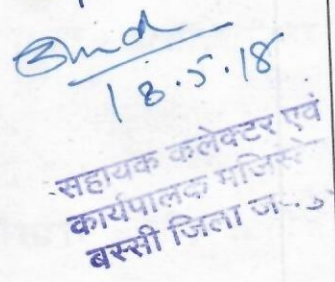 18.5.18
सहायक कलेक्टर एवं
कार्यपालक
बस्सी जिला